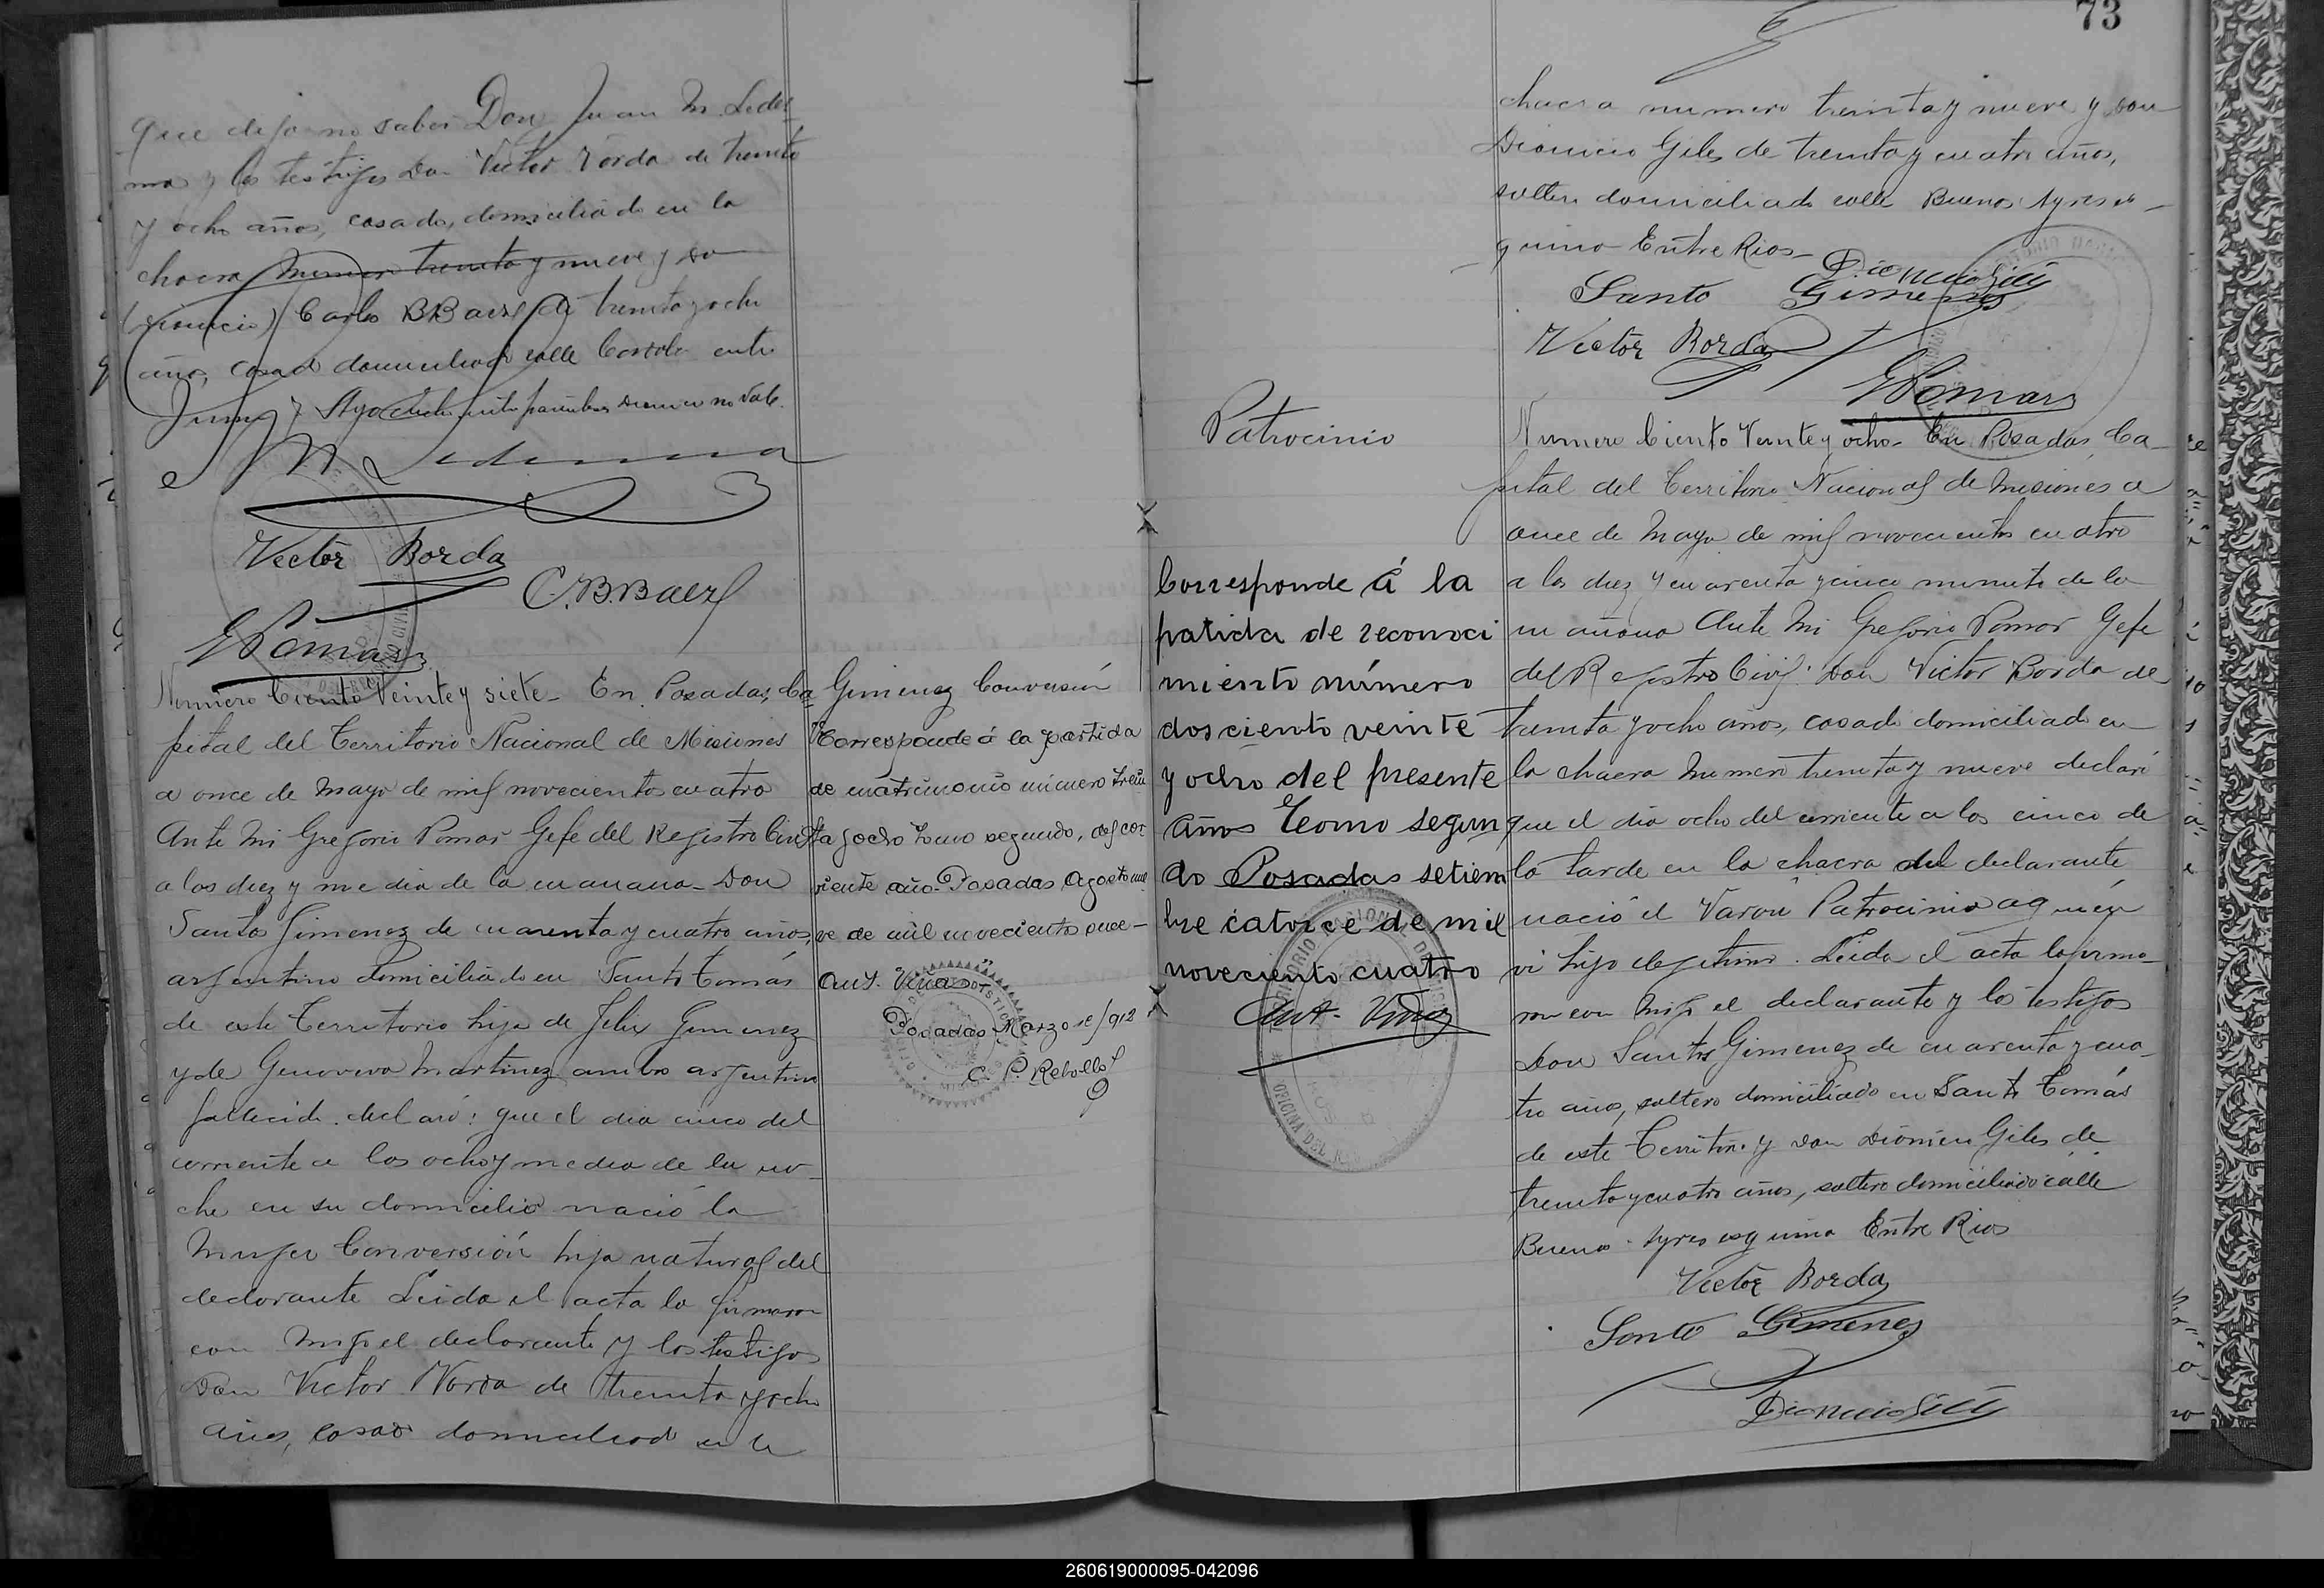 que dijo no saber Don Juan M. Ledes-
ma y los testigos Don Victor Vorda de treinta
y ocho años, casado, domiciliado en la
chacra numero treinta y nueve y Do
(Dionicio) Carlos B Baez de treinta y ocho
años, casado domiciliado calle Cordoba entre
Junin y Ayacucho entre parentesis Dionicio no vale.
J M Ledesma
Victor Borda
C.B.Baez
G Pomar
Numero Ciento Veinte y siete - En Posadas, Ca
pital del Territorio Nacional de Misiones
a once de Mayo de mil novecientos cuatro
Ante Mi Gregorio Pomar Gefe del Registro Civil
a las diez y media de la mañana - Don
Santos Gimenez de cuarenta y cuatro años,
argentino domiciliado en Santo Tomás
de este Territorio hijo de Felix Gimenez
y de Genoveva Martinez ambos argentinos
fallecido. declaró: que el dia cinco del
corriente a las ocho y media de la no-
che en su domicilio nació la
Mujer Conversión hija natural del
declarante Leida el acta la firmaron
con migo el declarante y los testigos
Don Victor Vorda de treinta y ocho
años, casado domiciliado en la
Gimenez Conversión
Corresponde á la partida
de matrimonio número trein
ta y ocho tomo segundo, del cor
riente año - Posadas Agosto nue
ve de mil novecientos once -
Ant. Viña
Posadas Marzo 1e/912
C. P. Rebollo
73
chacra numero treinta y nueve y Don
Dionicio Giles de treinta y cuatro años,
soltero domiciliado calle Buenos Ayres es-
quina Entre Rios -
Dionicio Gili
Santo Gimenez
Victor Borda
G Pomar
Patrocinio
Corresponde á la
patida de reconoci
miento número
dosciento veinte
y ocho del presente
años Tomo segun
do Posadas setiem
bre catorce de mil
noveciento cuatro
Ant. Viña
Numero Ciento Veinte y ocho - En Posadas, Ca-
pital del Territorio Nacional de Misiones a
once de Mayo de mil novecientos cuatro
a las diez y cuarenta y cinco minutos de la
mañana Ante Mi Gregorio Pomar Gefe
del Registro Civil: Don Victor Borda de
treinta y ocho años, casado domiciliado en
la chacra numero treinta y nueve declaró
que el dia ocho del corriente a las cinco de
la tarde en la chacra del declarante
nació el Varon Patrocinio a quien
vi hijo elegitimo. Leida el acta la firma-
ron con migo el declarante y los testigos
Don Santos Gimenez de cuarenta y cua-
tro años, soltero domiciliado en Santo Tomás
de este Territorio y Don Dionicio Giles de
treinta y cuatro años, soltero domiciliado calle
Buenos Ayres esquina Entre Rios
Victor Borda
Santo Gimenez
Dionicio Gili
260619000095-042096